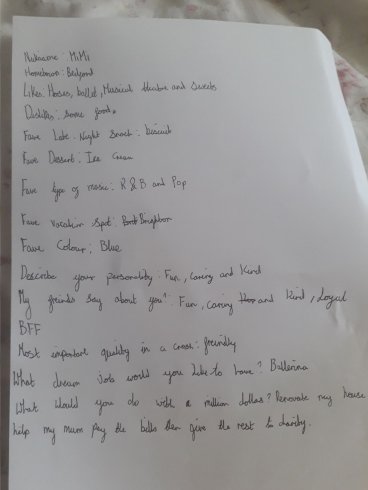 Nickname: MiMi
Hometown: Bedford
Likes: Horses, ballet, Musical theatre and Sweets
Dislikes: Some foods
Fave Late-Night Snack: biscuit
Fave Dessert: Ice Cream
Fave type of music: R&B and Pop
Fave vacation spot: Brighton
Fave Colour: Blue
Describe your personality: Fun, Caring and Kind
My friends say about you?: Fun, Caring and Kind, Loyal
BFF
Most important quality in a crush: friendly
What dream Job would you like to have? Ballerina
What would you do with a million dollars? Renovate my house
help my mum pay the bills then give the rest to charity.